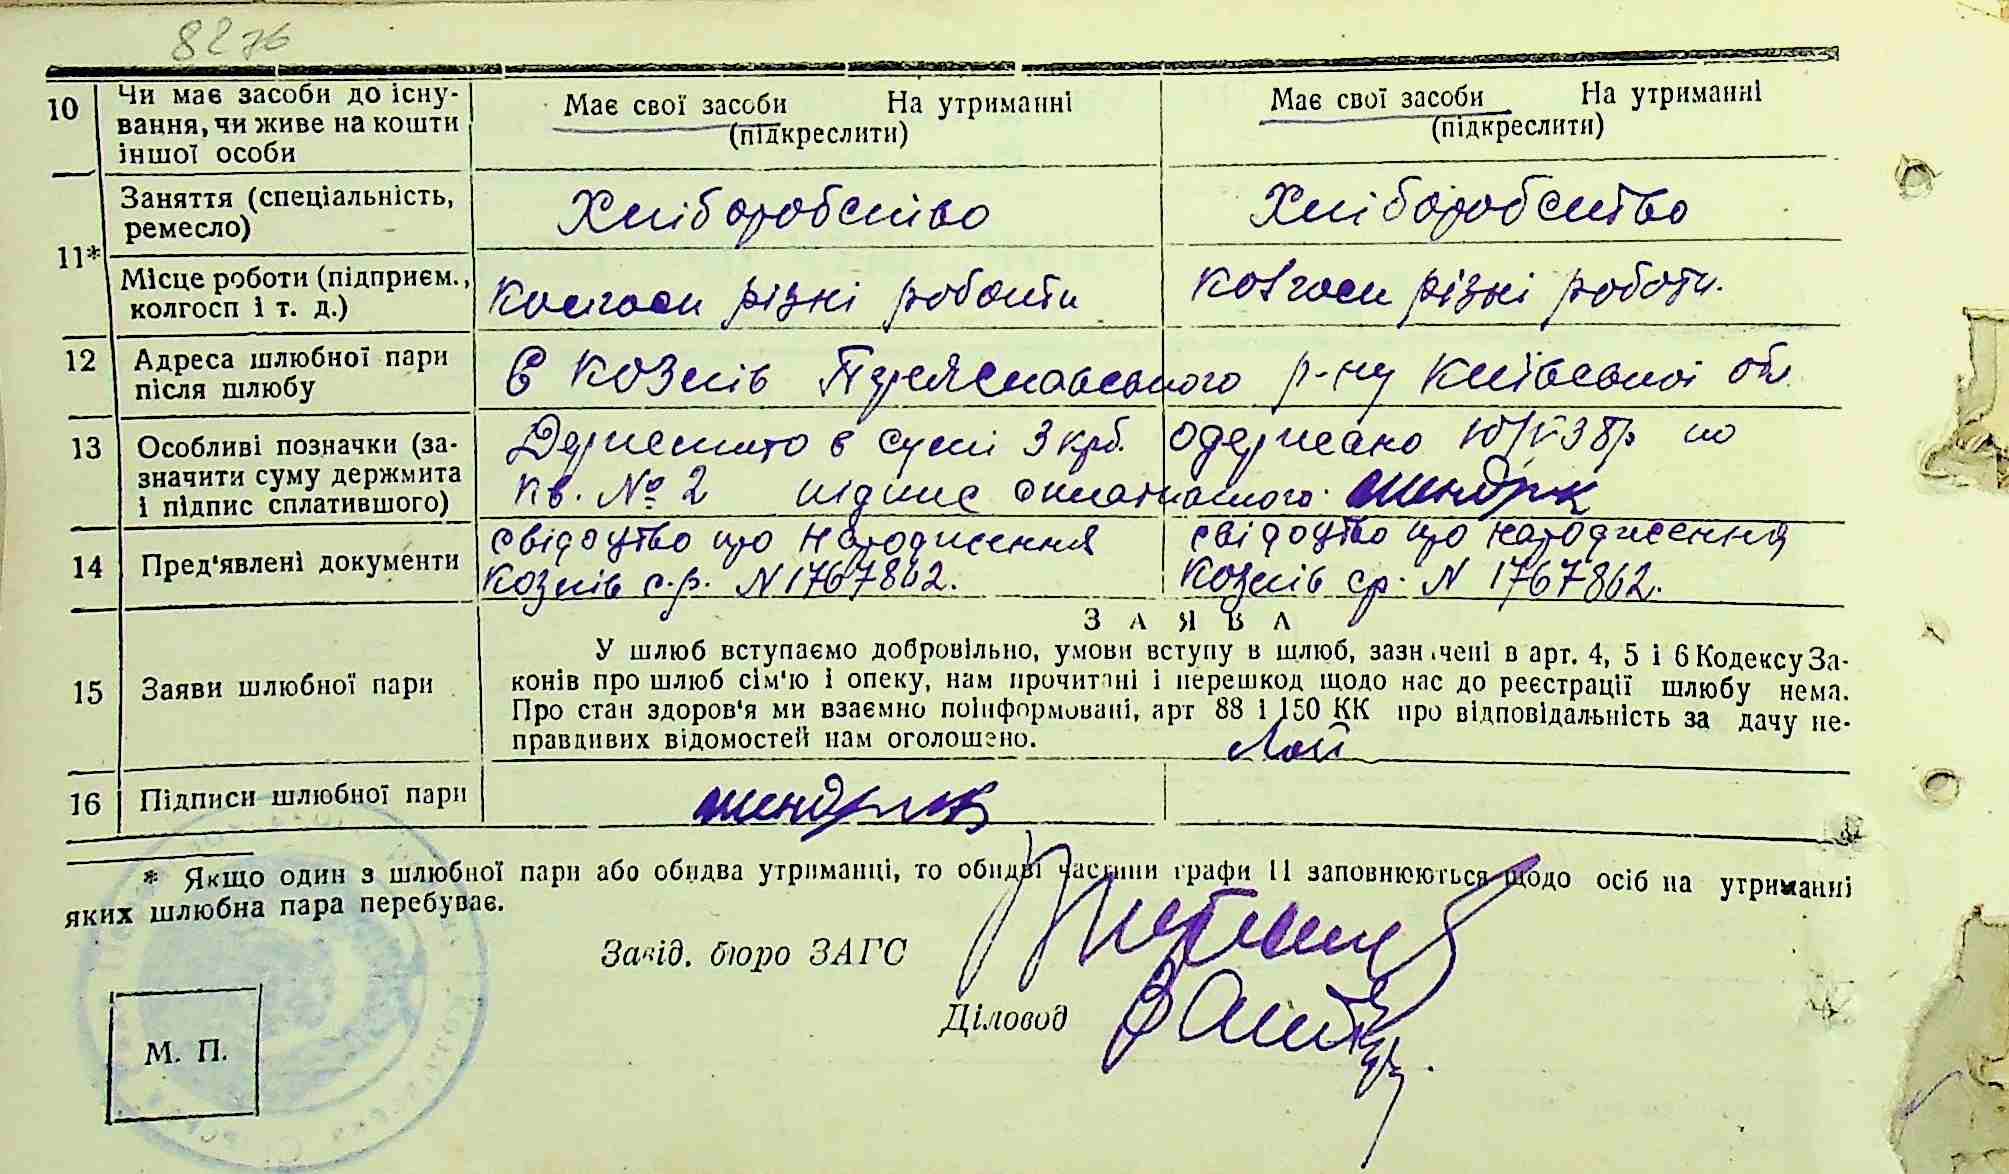 8276
10 Чи має засоби до існу- Має свої засоби На утриманні Має свої засоби На утриманні
вання, чи живе на кошти (підкреслити) (підкреслити)
іншої особи
11* Заняття (спеціальність, Хліборобство Хліборобство
ремесло)
Місце роботи (підприєм., Колгосп різні роботи Колгосп різні роботи.
колгосп і т. д.)
12 Адреса шлюбної пари Є Козлів Переяславського р-ну Київської обл.
після шлюбу
13 Особливі позначки (за- Держмито в сумі 3 крб. одержано 10/V 38р по
значити суму держмита кв. № 2 підпис
і підпис сплатившого)
14 Пред'явлені документи свідоцтво про народження свідоцтво про народження
Козлів с.р. N 1767862. Козлів ср. N 1767862.
З А Я В А
15 Заяви шлюбної пари У шлюб вступаємо добровільно, умови вступу в шлюб, зазначені в арт. 4, 5 і 6 Кодексу За-
конів про шлюб сім'ю і опеку, нам прочитані і перешкод щодо нас до реєстрації шлюбу нема.
Про стан здоров'я ми взаємно поінформовані, арт 88 і 150 КК про відповідальність за дачу не-
правдивих відомостей нам оголошено.
Лой
16 Підписи шлюбної пари
* Якщо один з шлюбної пари або обидва утриманці, то обидві частини графи 11 заповнюються щодо осіб на утриманні
яких шлюбна пара перебуває.
Завід. бюро ЗАГС
Діловод
М. П.